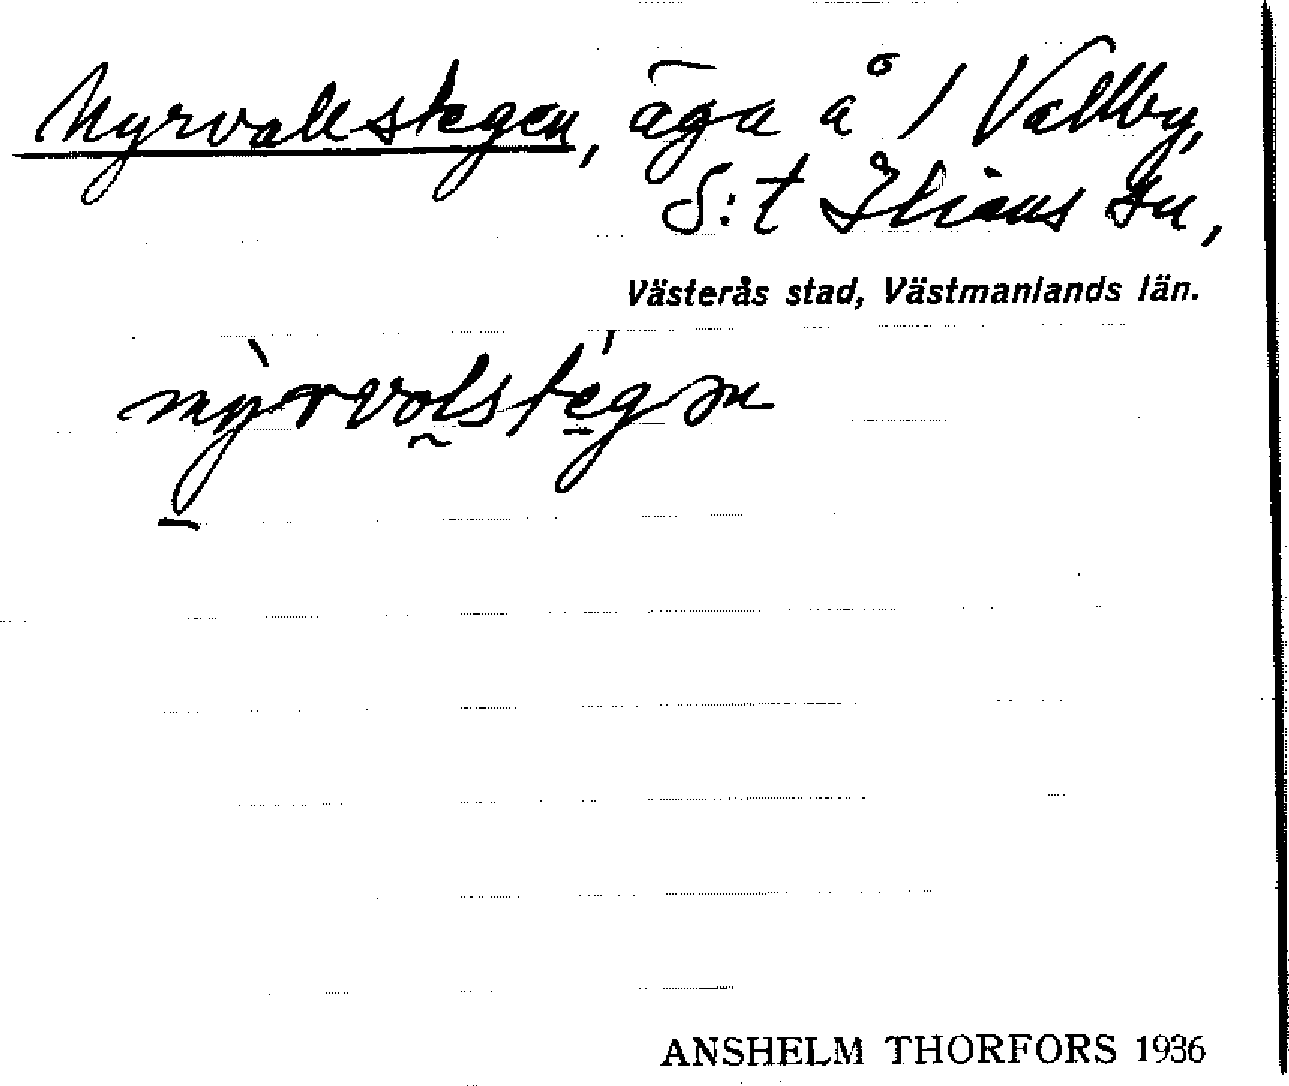 Nyrvallstegen, äga å 1 Vallby,
S:t Ilians sn,
Västerås stad, Västmanlands län.
ANSHELM THORFORS 1936